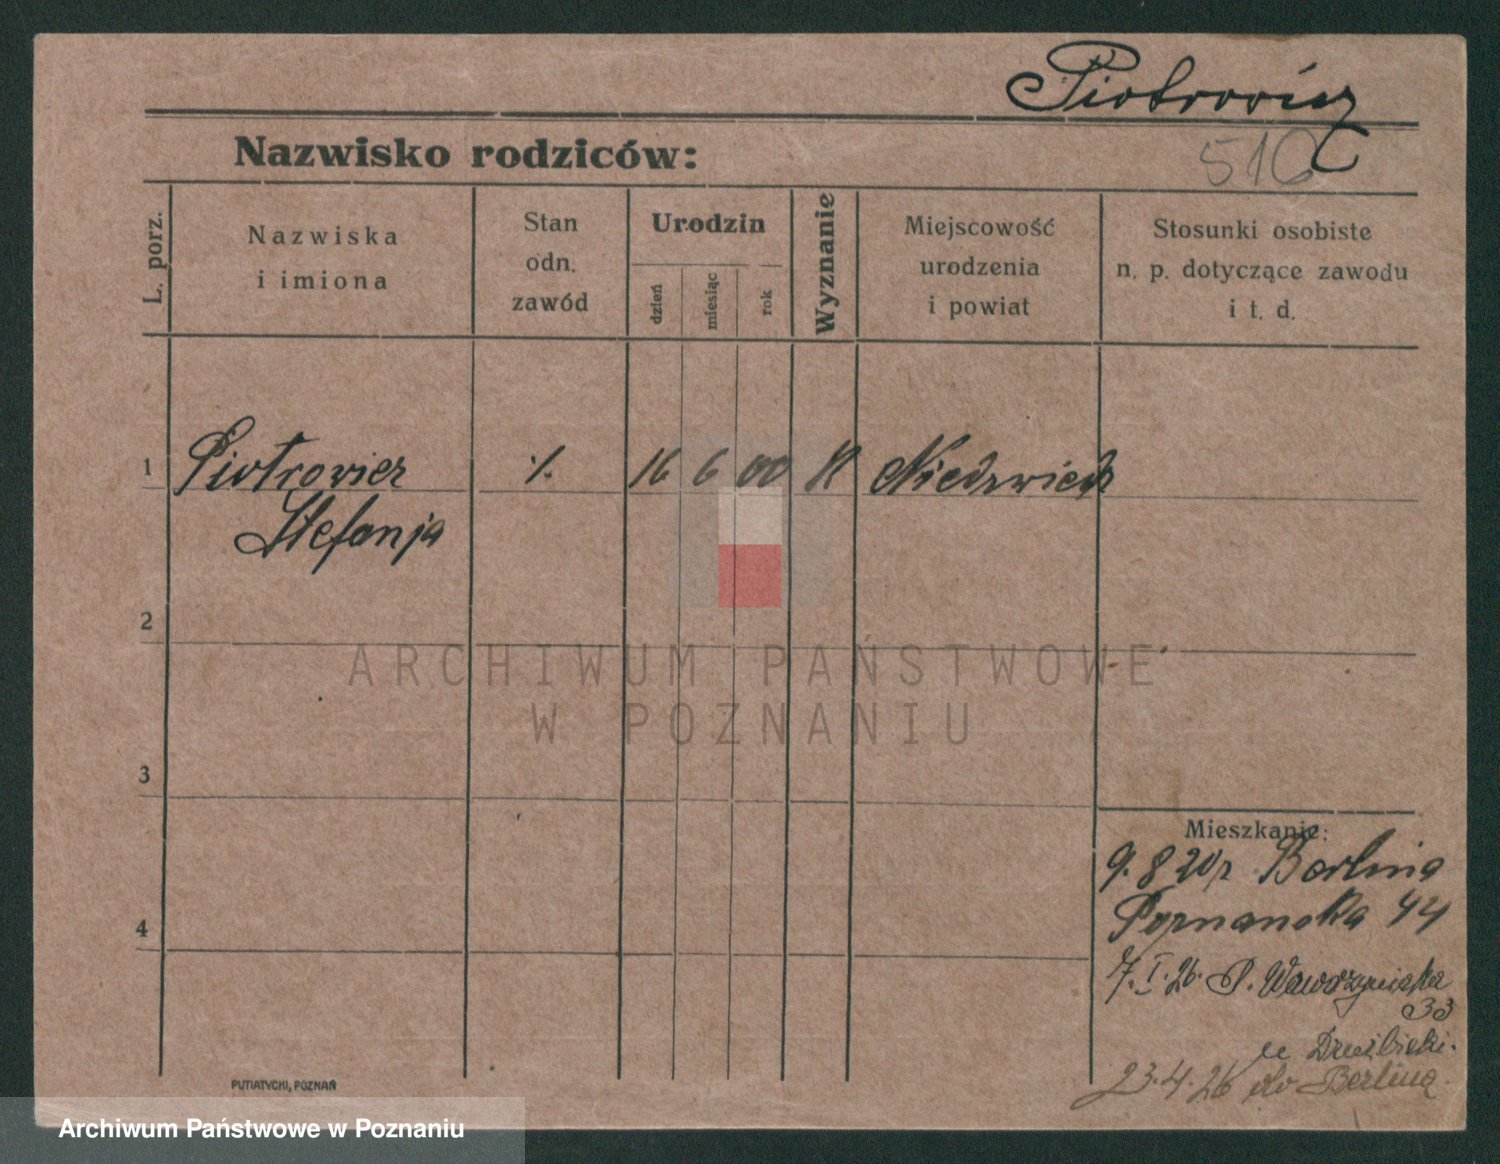 Piotrowicz
Nazwisko rodziców:
516
L. porz.
Nazwiska
i imiona
Stan
odn.
zawód
Urodzin
dzień
miesiąc
rok
Wyznanie
Miejscowość
urodzenia
i powiat
Stosunki osobiste
n. p. dotyczące zawodu
i t. d.
1 Piotrowicz ·/. 16 6 00 K Niedzwiedz
Stefanja
2
ARCHIWUM PAŃSTWOWE
W POZNANIU
3
Mieszkanie:
9.8 20 z Berlina
Poznanska 44
7.I.26. P. Wawrzyniaka
33
u Drużbicki.
4
23.4.26 do Berlina.
PUTIATYCKI, POZNAŃ
Archiwum Państwowe w Poznaniu